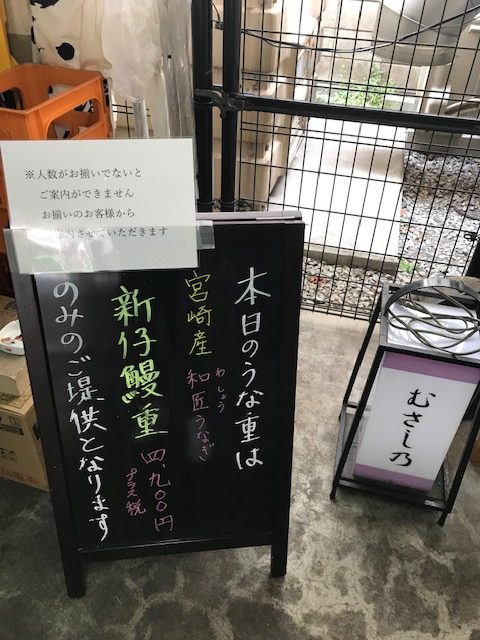 ※人数がお揃いでないと
ご案内ができません
お揃いのお客様から
内させていただきます
本日のうな重は
宮崎産 和匠うなぎ
わしょう
新仔鰻重 四、九〇〇円
プラス税
のみのご堤供となります
むさし乃